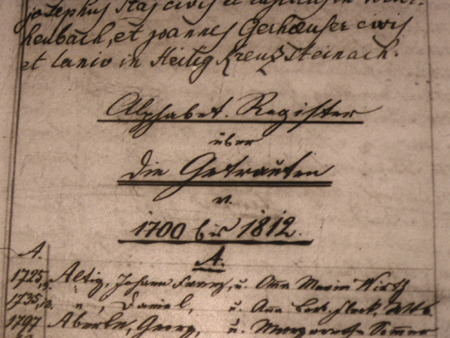 josephus civis et
heubach, et joannes Gerhäuser civis
et lanio in Heilig Kreuzsteinach.
Alphabet. Register
über
die Getrauten
v.
1700 bis 1812.
A.
A.
1725, Altig, Johann Franz, u. Anna Maria
1735, " , Daniel, u. Ann Wtb.
1797 Aberle, Georg, u. Margareth Sommer